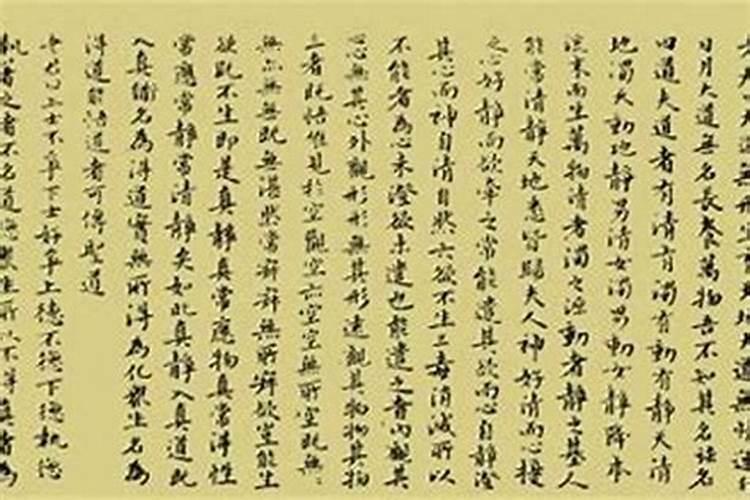 大道無形生育天地大道無情運行
日月大道無名長養萬物吾不知其名強名
曰道夫道者有清有濁有動有靜天清
地濁天動地靜男清女濁男動女靜降本
流末而生萬物清者濁之源動者靜之基人
能常清靜天地悉皆歸夫人神好清而心擾
之心好靜而欲牽之常能遣其欲而心自靜澄
其心而神自清自然六欲不生三毒消滅所以
不能者為心未澄欲未遣也能遣之者內觀其
心無其心外觀形形無其形遠觀其物物其物
三者既悟唯見於空觀空亦空空無所空既無
無亦無無既無湛然常寂寂無所寂欲豈能生
欲既不生即是真靜真常應物真常得性
常應常靜常清靜矣如此真靜入真道此
入真道名為得道實無所得為化眾生名為
得道能悟道者可傳聖道
老君曰上士不爭下士好爭上德不德下德執德
執著之者不名道德眾生所以不得真者為